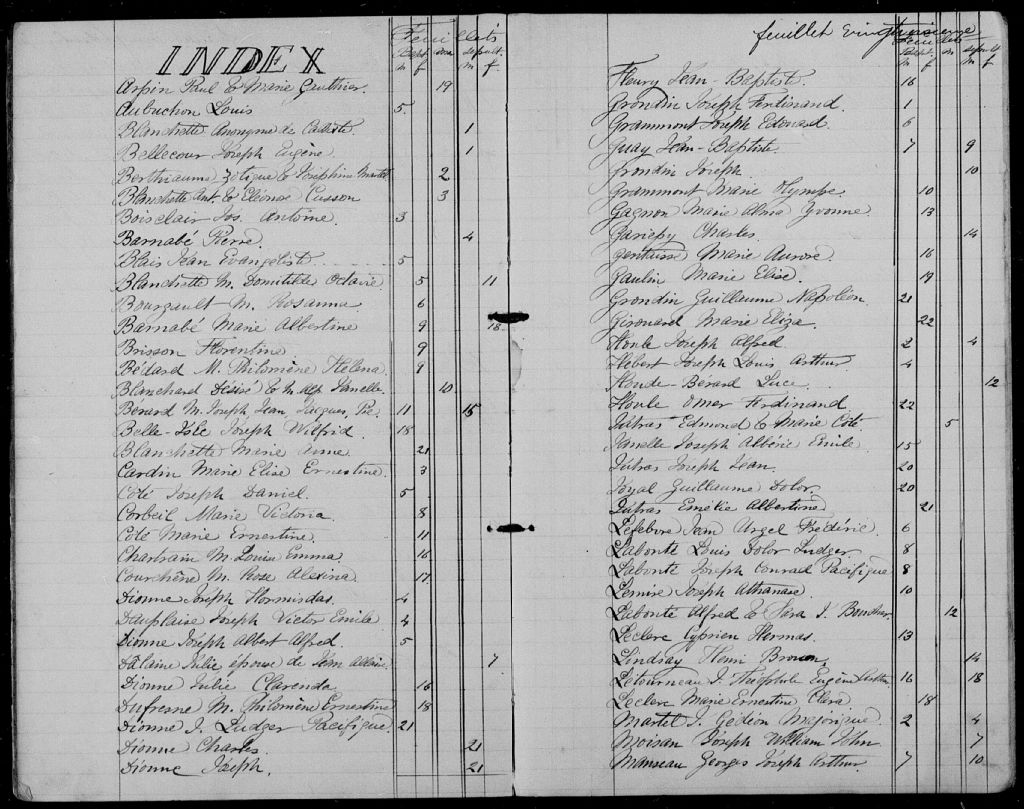 INDEX
Feuillets
Bapt. Sepult.
m f m f
Arpin Paul & Marie Gauthier. 19
Aubuchon Louis 5
Blanchette Anonyme de Calixte 1
Bellecour Joseph Eugène 1
Berthiaume Zotique & Joséphine Martel 2
Blanchette Ant. & Eléonore Cusson 3
Boisclair Jos. Antoine 3
Barnabé Pierre. 4
Blais Jean Evangeliste 5
Blanchette M. Domitilde Octavie 5 11
Bourgault M. Rosanna 6
Barnabé Marie Albertine 9 18
Brisson Florentine 9
Bédard M. Philomène Helena 9
Blanchard Désiré & M. Alp. Janelle. 10
Bérard M. Joseph Jean Jacques, Pre. 11 15
Belle-Isle Joseph Wilfrid. 18
Blanchette Marie Anna 21
Cardin Marie Elise Ernestine 3
Côté Joseph Daniel. 5
Corbeil Marie Victoria. 8
Côté Marie Ernestine. 11
Chartrain M. Louise Emma 16
Courchène M. Rose Alexina 17
Dionne Joseph Hormisdas. 4
Duplaise Joseph Victor Emile 4
Dionne Joseph Albert Alfred. 5
Dalaine Julie épouse de Jean Allaire. 7
Dionne Julie Clarenda 16
Dufresne M. Philomène Ernestine 18
Dionne J. Ludger Pacifique. 21
Dionne Charles. 21
Dionne Joseph. 21
feuillet vingtroisième
Feuillets
Bapt. m Sepult
m f m f
Fleury Jean-Baptiste 16
Grondin Joseph Ferdinand. 1
Grammont Joseph Edouard. 6
Guay Jean-Baptiste. 7 9
Grondin Joseph. 10
Grammont Marie Olympe 10
Gagnon Marie Alma Yvonne 13
Gariepy Charles. 14
Marie Aurore 16
Gaulin Marie Elise. 19
Grondin Guillaume Napoléon 21
Girouard Marie Eliza. 22
Houle Joseph Alfred 2 4
Hébert Joseph Louis Arthur 4
Houde-Bérard Luce 12
Houle Omer Ferdinand. 22
Jutras Edmond & Marie Côté 5
Janelle Joseph Albéric Emile 15
Jutras Joseph Jean. 20
Joyal Guillaume Dolor. 20
Jutras Emélie Albertine 21
Lefebvre Jean Argel Frédéric. 6
Labonté Louis Dolor Ludger 8
Labonté Joseph Conrad Pacifique 8
Lemire Joseph Athanase 10
Labonté Alfred & Sara J. Boucher. 12
Leclerc Cyprien Hermas. 13
Lindsay Henri Brown. 14
Letourneau J. Théophile Eugène 16 18
Leclerc Marie Ernestine Clara 18
Martel J. Gédéon Majorique. 2 4
Moisan Joseph William John 7
Manseau Georges Joseph Arthur. 7 10